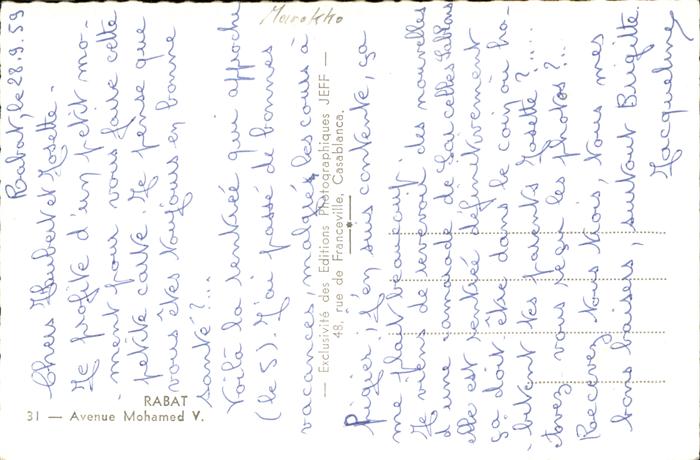 Marokko
Rabat, le 28.9.59
Chers Houbert et Josette.
Je profite d'un petit mo-
ment pour vous faire cette
petite carte. Je pense que
vous êtes toujours en bonne
santé?...
Voilà la rentrée qui approche
(le 5). J'ai passé de bonnes
vacances, malgré les cours à
Pigier, j'en suis contente, ça
me plait beaucoup.
Je viens de recevoir des nouvelles
d'une amaide de Sarcelles
elle est rentrée définitivement
ça doit être dans le coin où ha-
bitent tes parents Josette?....
Avez vous reçu les photos?..
Recevez tous trois, tous mes
bons baisers, surtout Brigitte
Jacqueline
— Exclusivité des Editions Photographiques JEFF —
48, rue de Franceville, Casablanca.
RABAT
31 — Avenue Mohamed V.